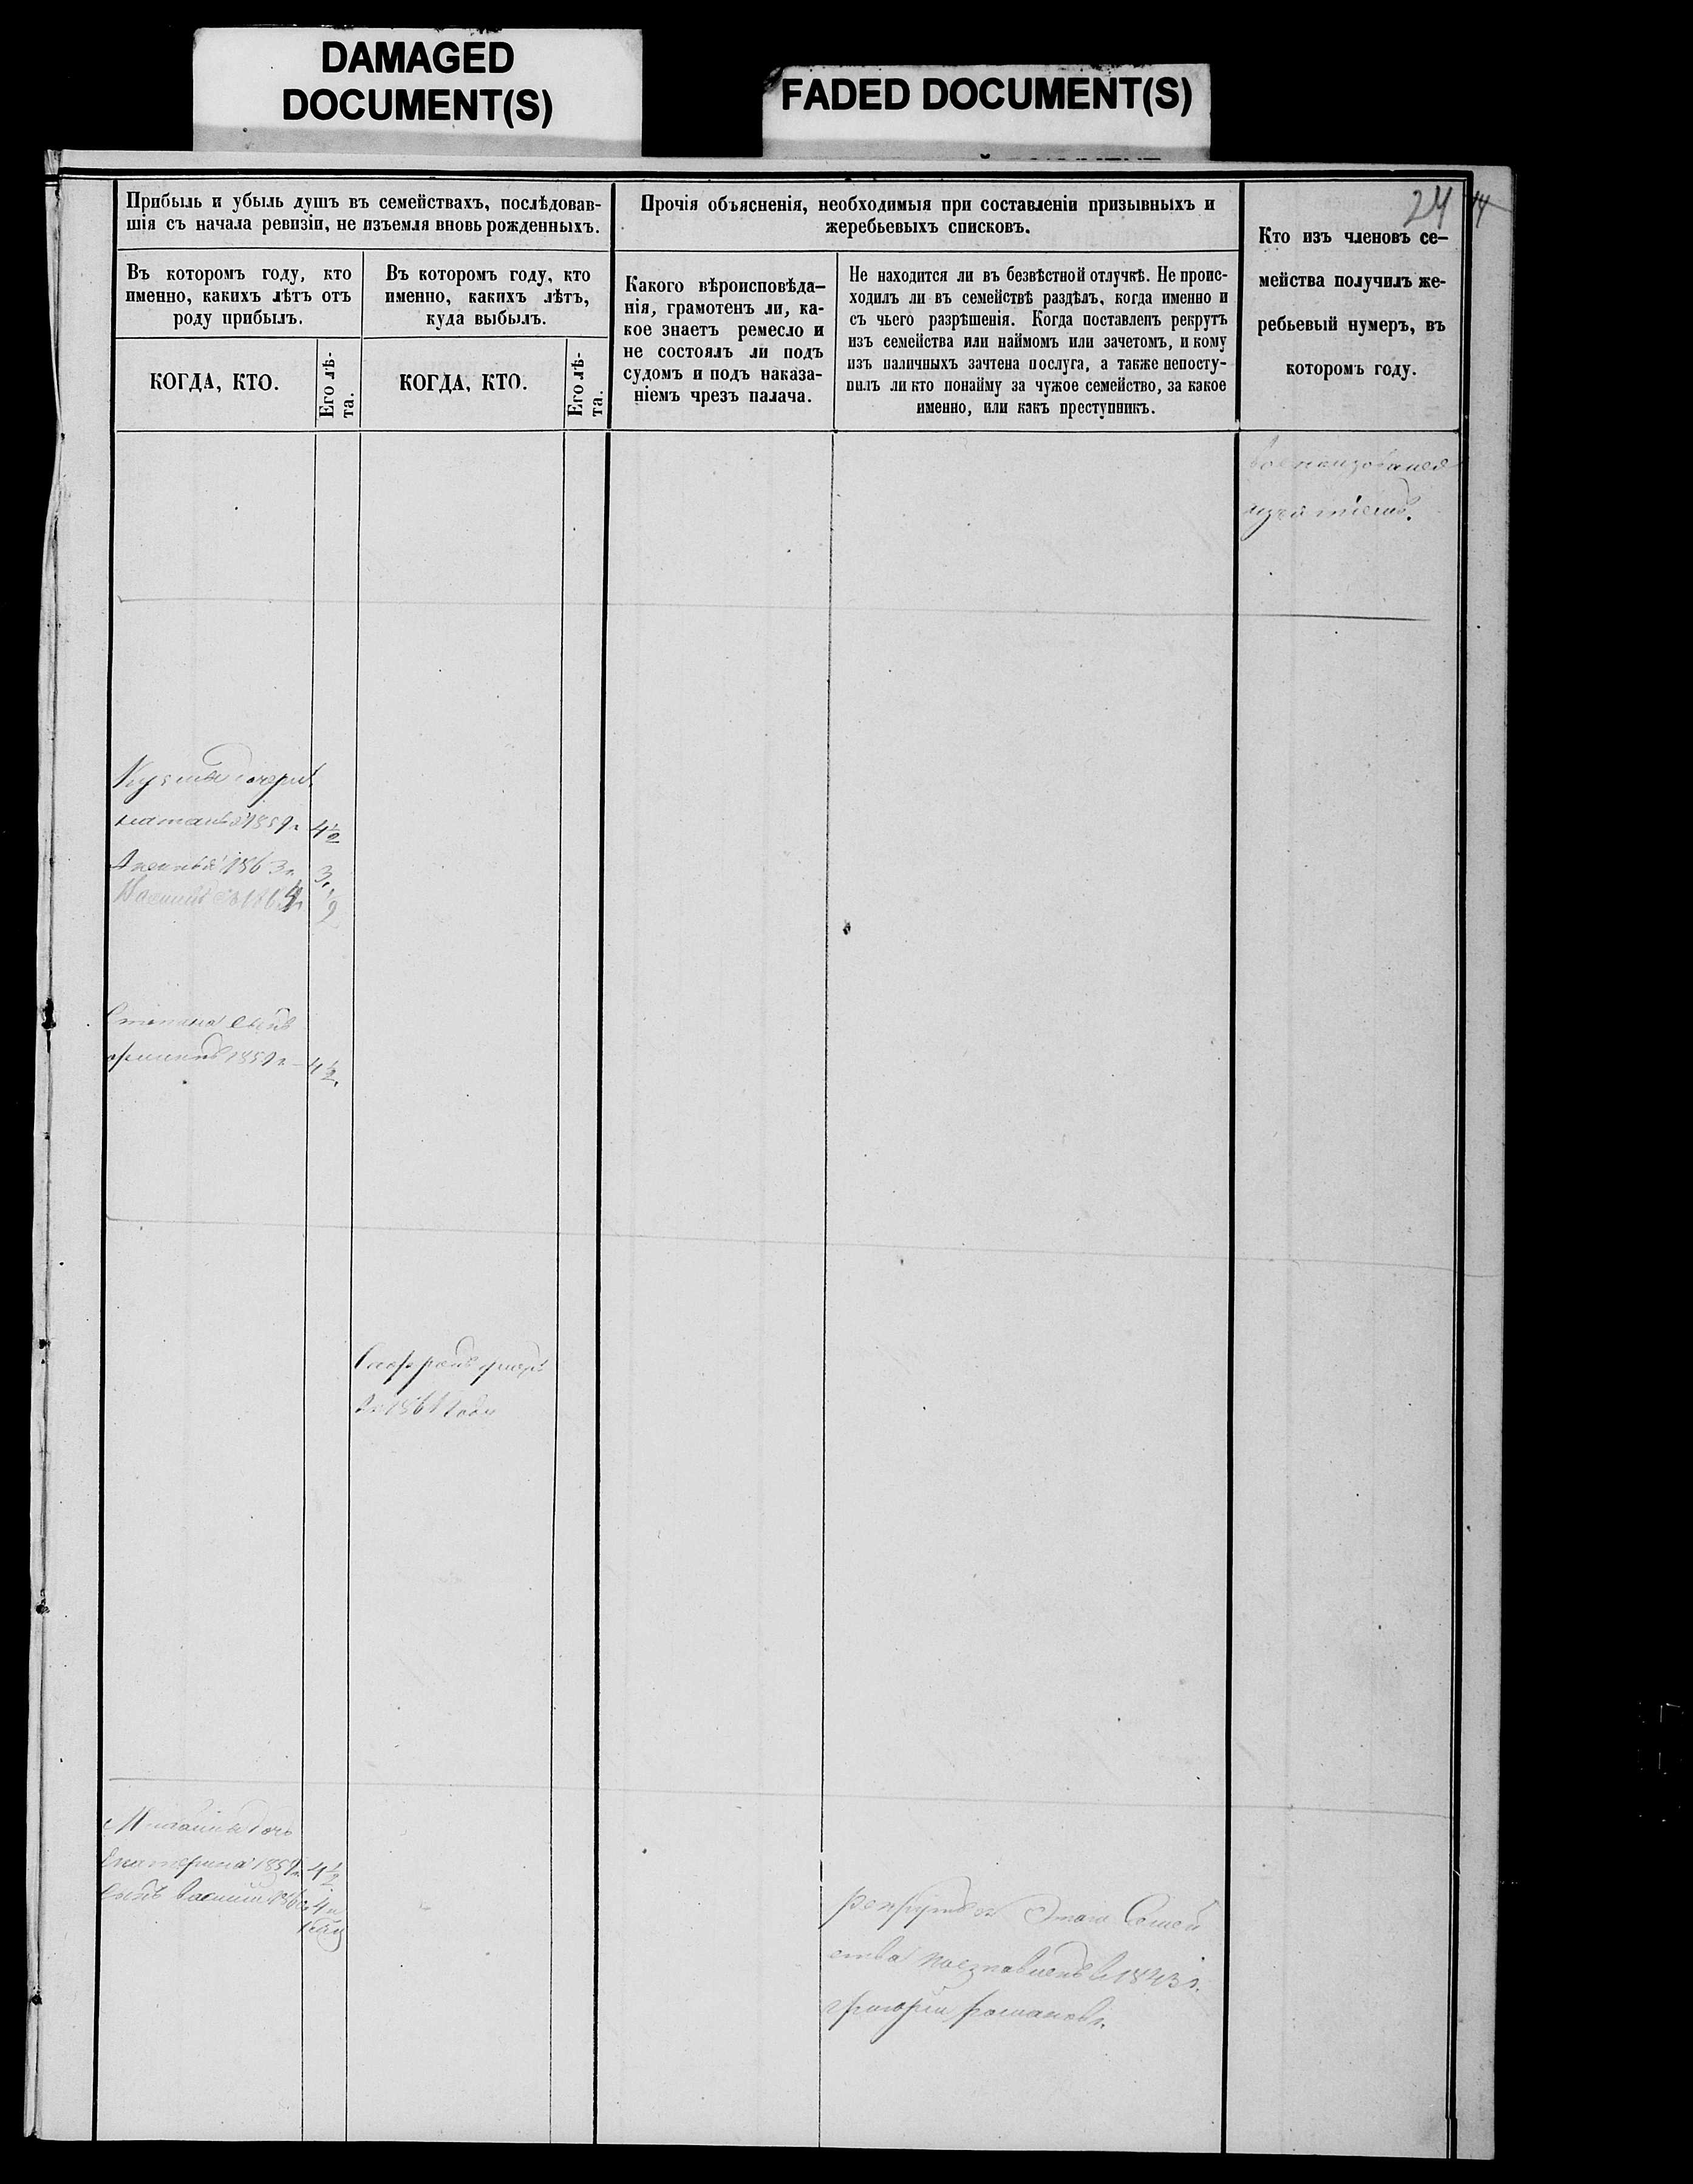 DAMAGED
DOCUMENT(S)
FADED DOCUMENT(S)
24
Прибыль и убыль душъ въ семействахъ, послѣдовав-
шія съ начала ревизіи, не изъемля вновь рожденныхъ.
Въ которомъ году, кто
именно, какихъ лѣтъ отъ
роду прибылъ.
КОГДА, КТО.
Его лѣ-
та.
Въ которомъ году, кто
именно, какихъ лѣтъ,
куда выбылъ.
КОГДА, КТО.
Его лѣ-
та.
Прочія объясненія, необходимыя при составленіи призывныхъ и
жеребьевыхъ списковъ.
Какого вѣроисповѣда-
нія, грамотенъ ли, ка-
кое знаетъ ремесло и
не состоялъ ли подъ
судомъ и подъ наказа-
ніемъ чрезъ палача.
Не находится ли въ безвѣстной отлучкѣ. Не проис-
ходилъ ли въ семействѣ раздѣлъ, когда именно и
съ чьего разрѣшенія. Когда поставленъ рекрутъ
изъ семейства или наймомъ или зачетомъ, и кому
изъ наличныхъ зачтена послуга, а также непосту-
пилъ ли кто понайму за чужое семейство, за какое
именно, или какъ преступникъ.
Кто изъ членовъ се-
мейства получилъ же-
ребьевый нумеръ, въ
которомъ году.
Кузмы дочери
1859 4½
1863 3
Степана сынъ
1859 4½
умеръ
1861 года
дочь
Екатерина 1859 4½
сынъ Василий 4
рекрутъ Этаго Семей
ства поставленъ в 1843 г.
Григорий Романовъ.